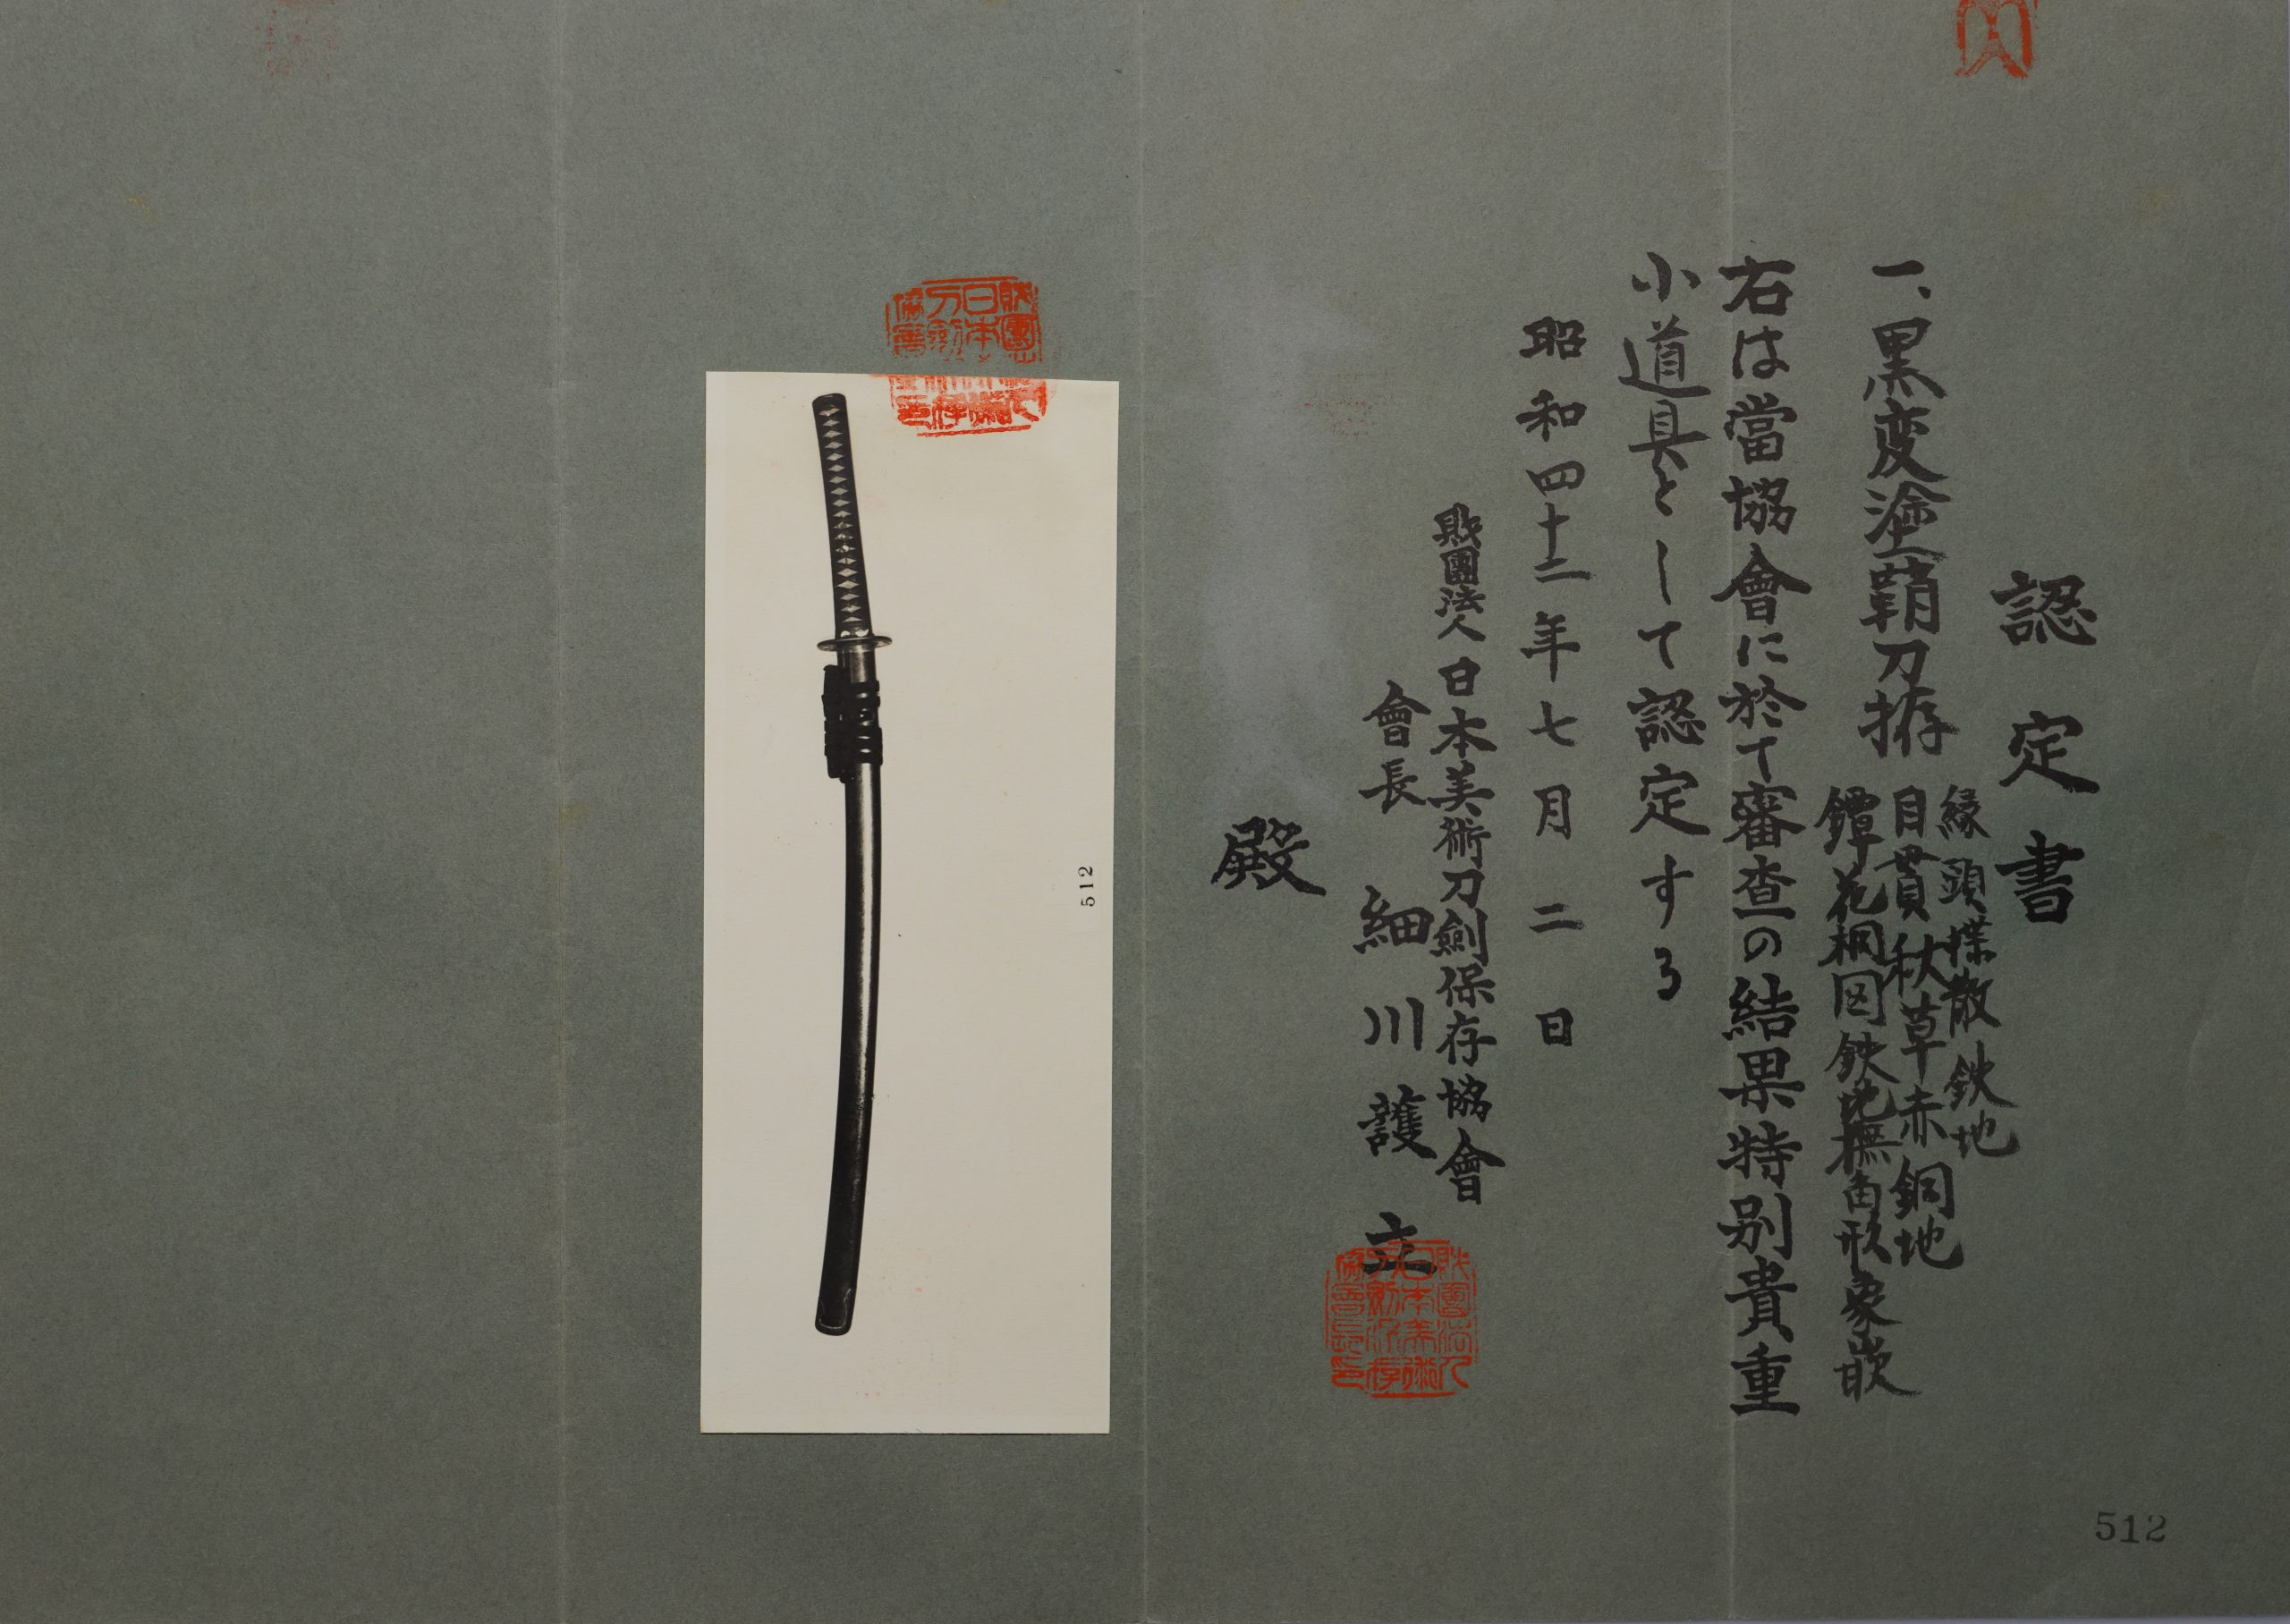 認定書
一、黒変塗鞘刀拵
縁頭蝶散鉄地
目貫秋草赤銅地
鐔花桐図鉄地撫角形象嵌
右は當協會に於て審査の結果特別貴重
小道具として認定する
昭和四十二年七月二日
財團法人日本美術刀劍保存協會
會長 細川護立
殿
512
512